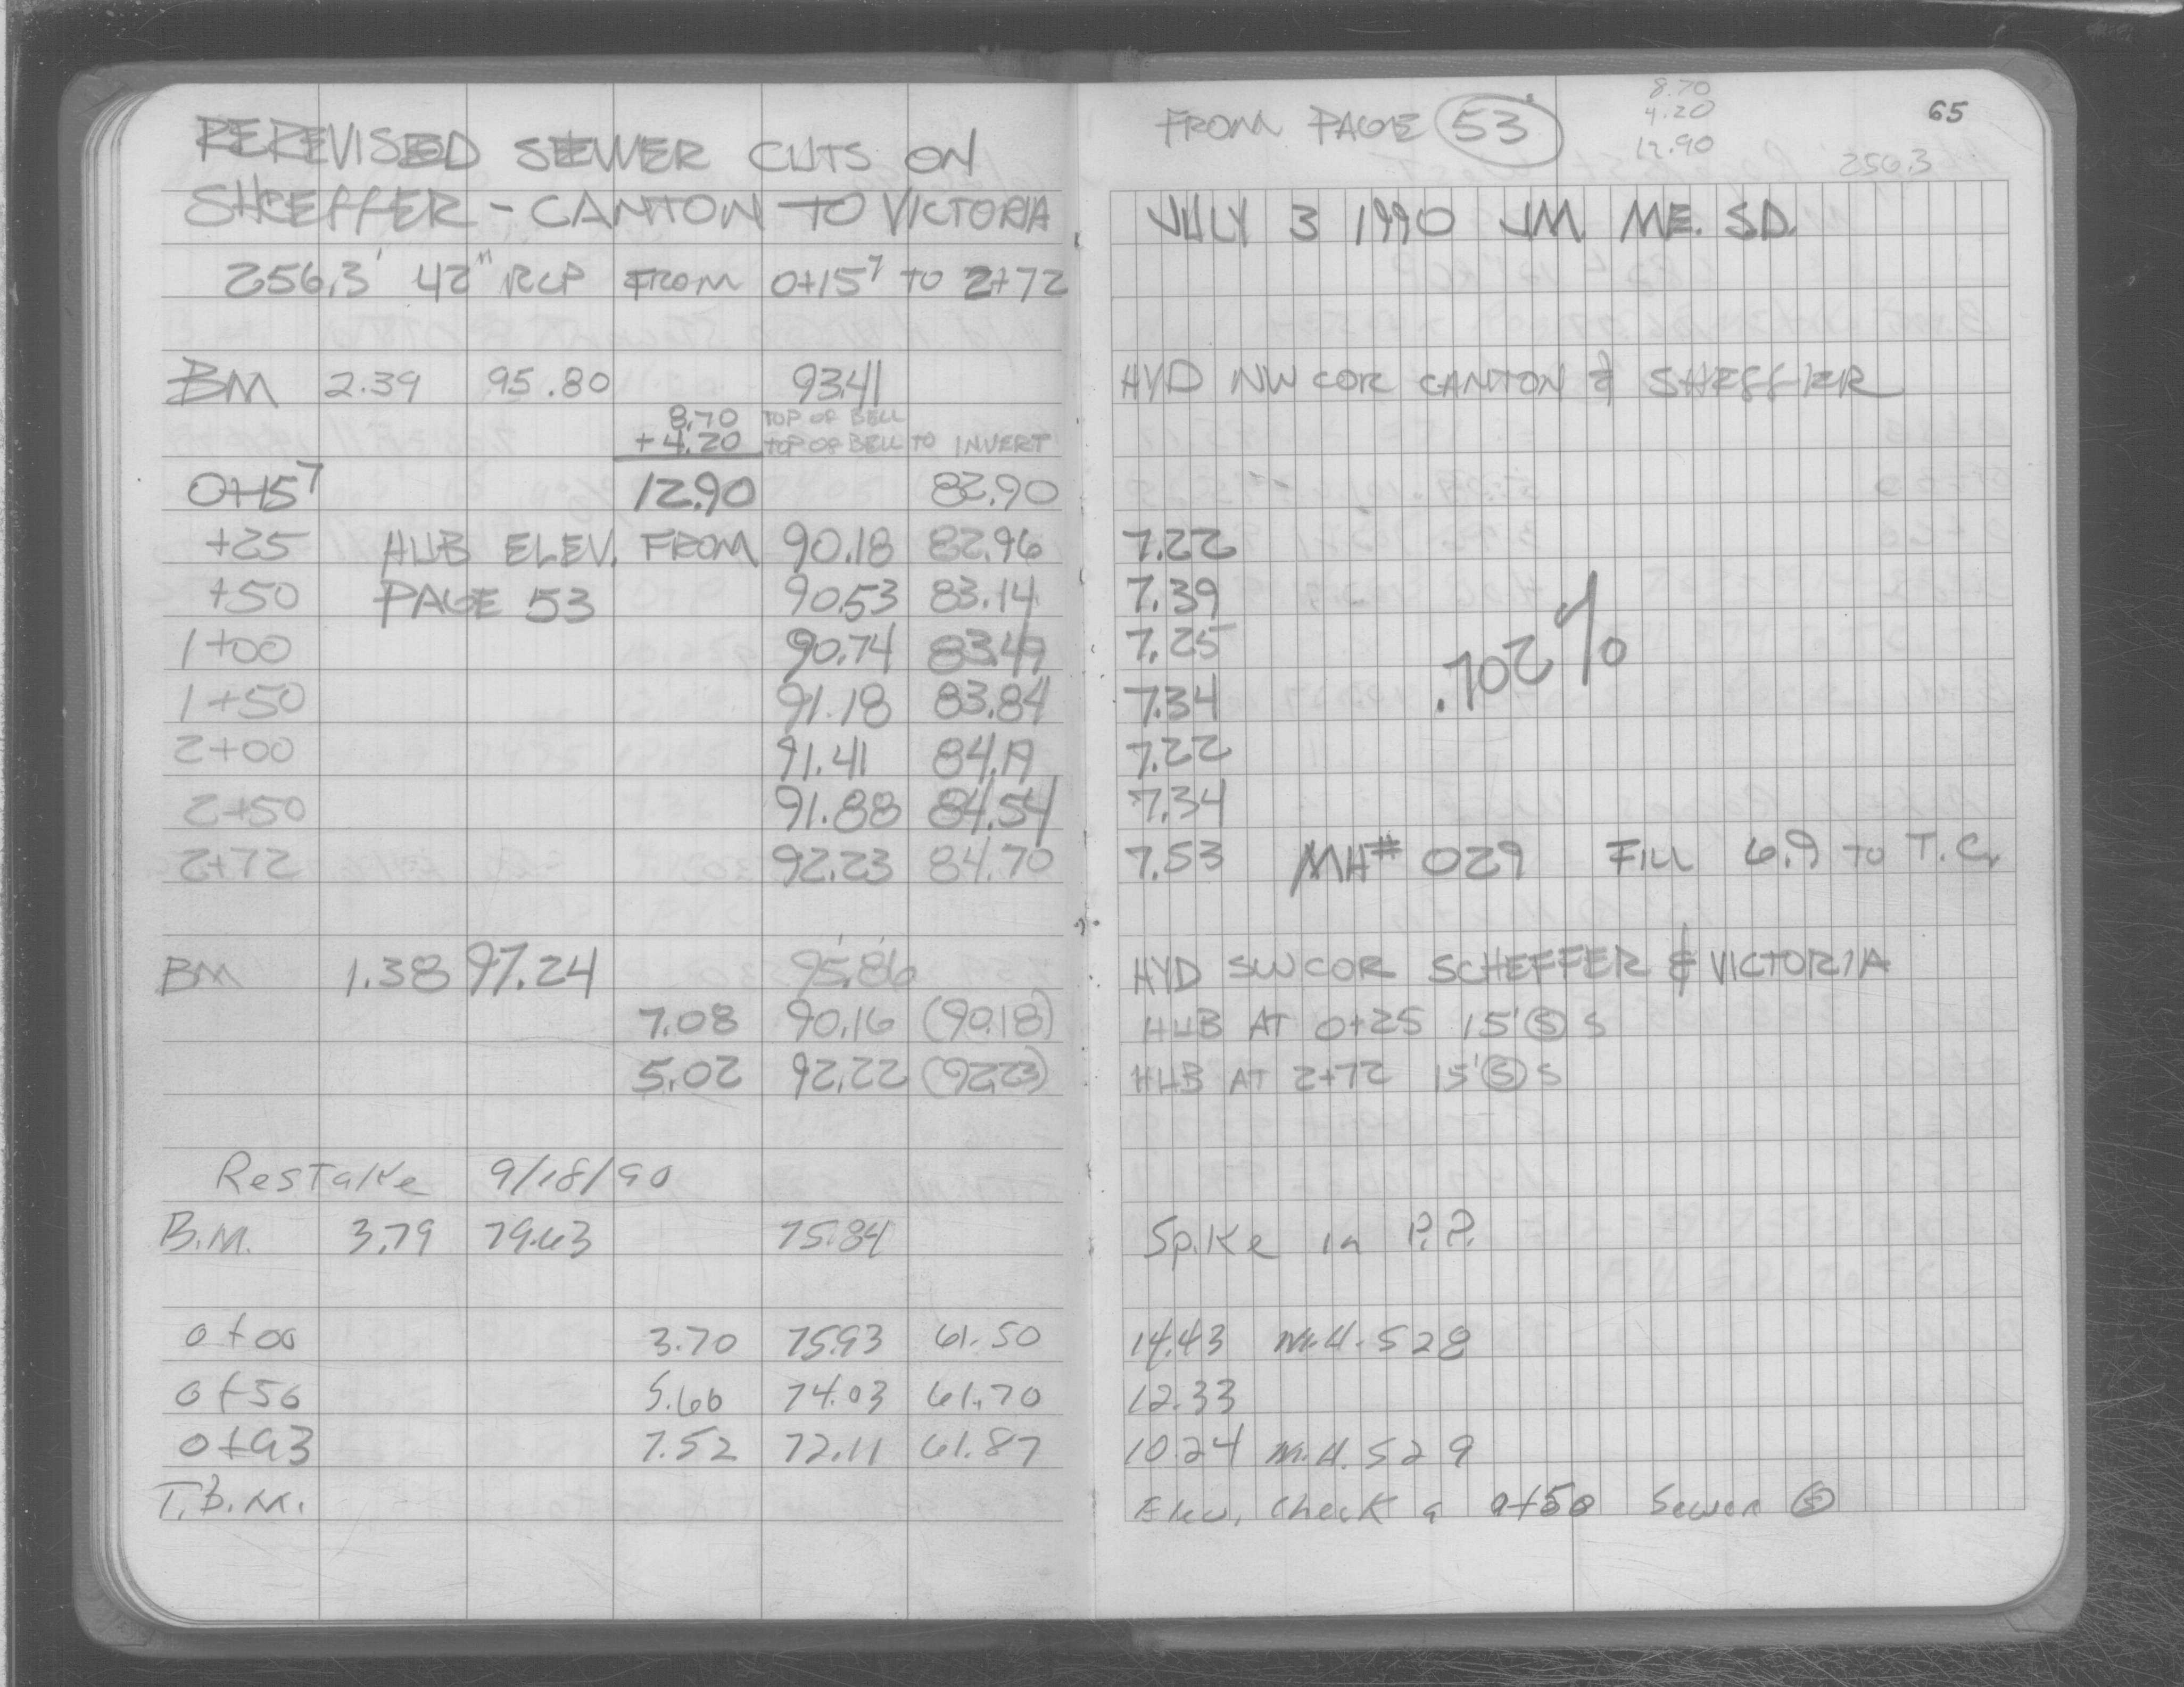 REREVISED SEWER CUTS ON
SHEFFER - CANTON TO VICTORIA
256.3' 42" RCP FROM 0+15⁷ TO 2+72
BM 2.39 95.80 93.41
8.70 TOP OF BELL
+4.20 TOP OF BELL TO INVERT
0+15⁷ 12.90 82.90
+25 HUB ELEV. FROM 90.18 82.96
+50 PAGE 53 90.53 83.14
1+00 90.74 83.49
1+50 91.18 83.84
2+00 91.41 84.19
2+50 91.88 84.54
2+72 92.23 84.70
BM 1.38 97.24 95.86
7.08 90.16 (90.18)
5.02 92.22 (92.23)
Restake 9/18/90
B.M. 3.79 79.63 75.84
0+00 3.70 75.93 61.50
0+50 5.60 74.03 61.70
0+93 7.52 72.11 61.87
T.B.M.
FROM PAGE 53
8.70
4.20
12.90
65
256.3
JULY 3 1990 JM. ME. S.D.
HYD NW COR CANTON & SHEFFER
7.22
7.39
7.25
.702%
7.34
7.22
7.34
7.53 MH# 029 FILL 6.9 TO T.C.
HYD SW COR SCHEFFER & VICTORIA
HUB AT 0+25 15' Ⓢ S
HUB AT 2+72 15' Ⓢ S
Spike in P.P.
14.43 M.H. 528
12.33
10.24 M.H. 529
Elev. Check 0+50 Sewer Ⓢ